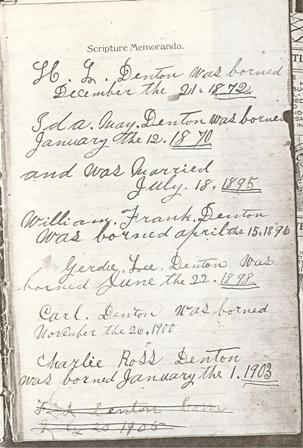 Scripture Memoranda.
H. L. Denton was borned
December the 21. 1872.
Ida. May. Denton was borned
January the 12. 1870
and was Married
July. 18. 1895
William. Frank. Denton
was borned april the 15. 1896
Gerdie. Lee. Denton was
borned June the 22. 1898
Carl. Denton was borned
November the 26. 1900
Charlie Ross Denton
was borned January the 1. 1903
Denton born